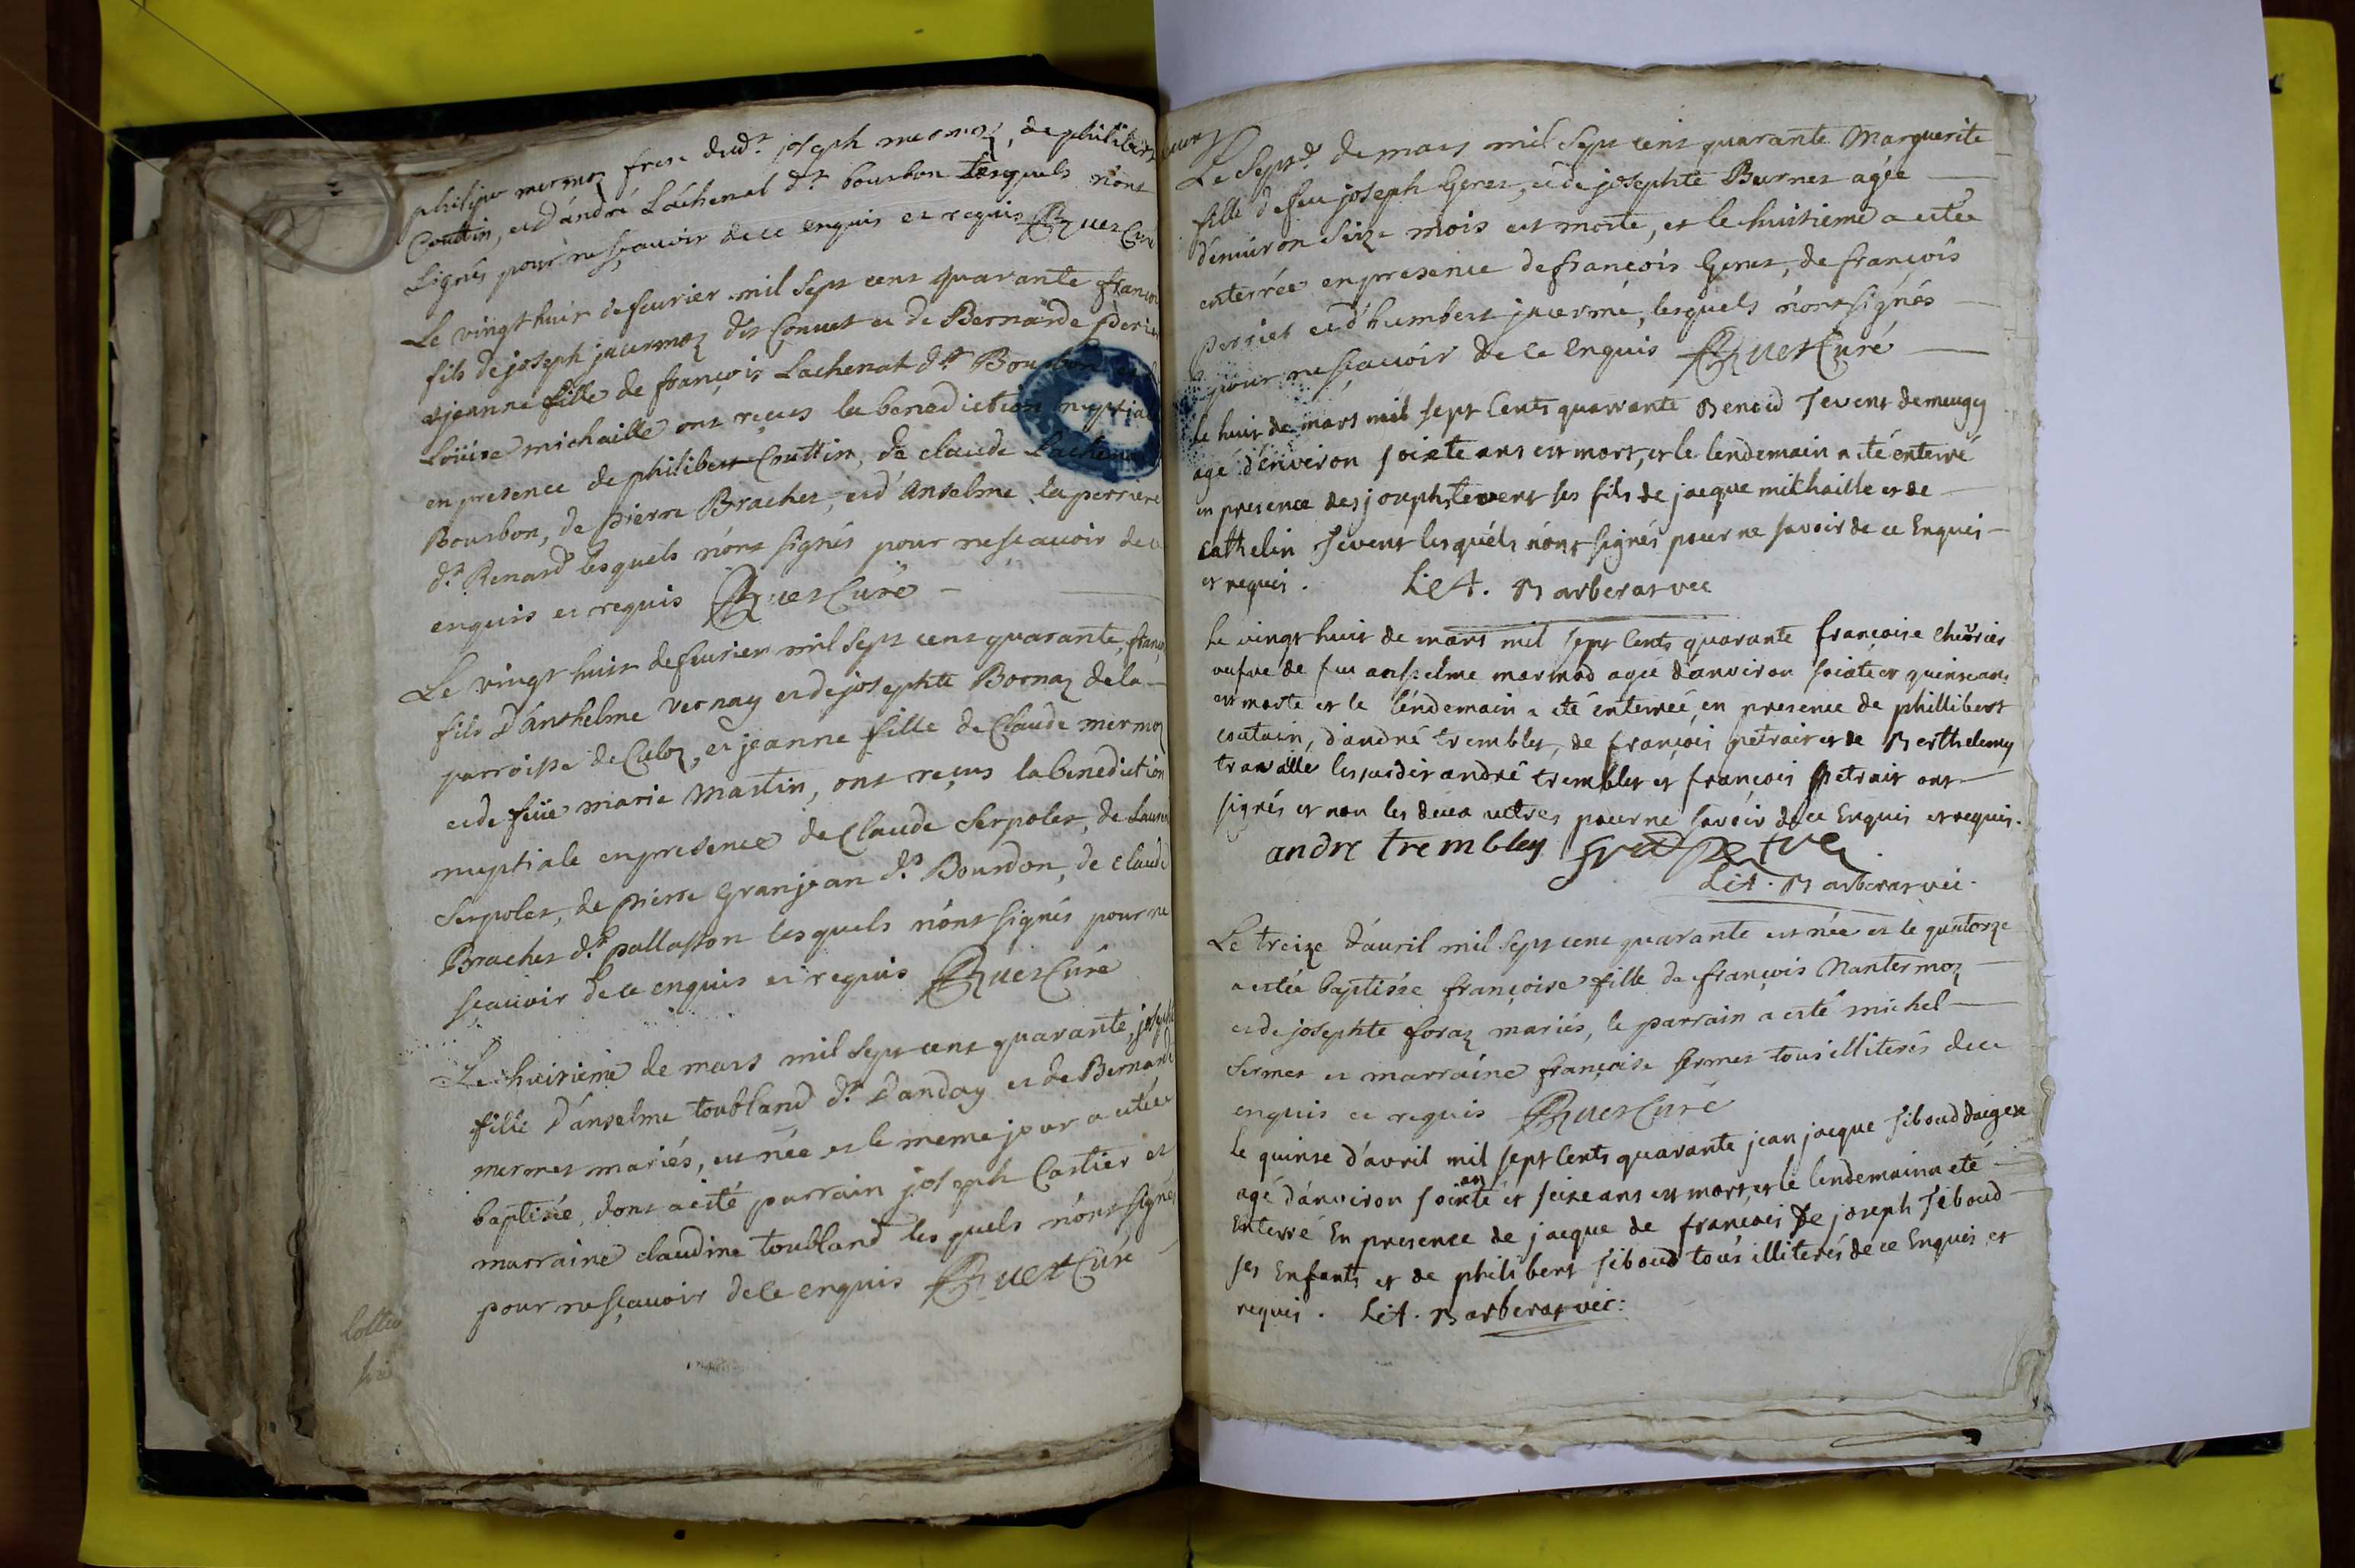 philipe mermoz frere dud.t joseph mermoz, de philibert
Couttin, et d'andré Lachenal d.t bourbon lesquels n'ont
signés pour ne sçauoir de ce enquis et requis Ruet Curé
Le vingt huit de feurier mil sept cent quarante françois
fils de joseph jacermoz dit Conuet et de Bernarde
et jeanne fille de françois Lachenat d.t Bourbon
Loüise michaille ont reçus la benediction nuptiale
en presence de philibert Couttin, de claude Lachenal
Bourbon, de pierre Brachet, et d'Anselme la perriere
d.t Renard lesquels n'ont signés pour ne sçauoir de ce
enquis et requis Ruet Curé
Le vingt huit de feurier mil sept cent quarante, françois
fils d'Anthelme vernay et de josephte Bornaz de la
parroisse de Culoz, et jeanne fille de Claude mermoz
et de feüe marie Martin, ont reçus la benediction
nuptiale en presence de Claude Serpolet, de Laurent
Serpolet, de pierre Granjean d.t Bourdon, de claude
Brachet d.t pallasson lesquels n'ont signés pour ne
sçauoir de ce enquis et requis Ruet Curé
Le huitieme de mars mil sept cent quarante, josephte
fille d'anselme toubland d.t Dandoy et de Bernarde
mermet mariés, est née et le meme jour a estée
baptisée, dont a esté parrain joseph Cartier et
marraine claudine toubland lesquels n'ont signés
pour ne sçauoir de ce enquis Ruet Curé
Le sept.e de mars mil sept cent quarante Marguerite
fille de feu joseph Genet, et de josephte Burnet agée
d'enuiron seize mois est morte, et le huitieme a estée
enterrée en presence de françois Genet, de françois
perriet et d'humbert jacermé, lesquels n'ont signés
pour ne sçauoir de ce enquis Ruet Curé
le huit de mars mil sept Cents quarrante Benoid Tevent demeugy
agé d'environ soixte ans est mort, et le lendemain a té enterré
en presence des joseph Tevent ses fils de jacque mikhaille et de
Cathelin Tevent lesquéls n'ont signés pour ne savoir de ce Enquis
et requis. Lie A. Barberat vic
Le vingt huit de mars mil sept Cents quarante françoise chevrier
veufve de feu anselme mermod agée d'anviron soixte et quinse ans
est morte et le lendemain a été enterrée, en presence de phillibert
coutain, d'andné tremblet, de françois petrait et de Berthelemy
travaille lessusdit andré tremblet et françois petrait ont
signés et non les deux autres pour ne savoir de ce Enquis et requis.
andre trembley
Lie A. Barberat vic.
Le treize d'auril mil sept cent quarante est née et le quatorze
a estée baptisée françoise fille de françois Nantermoz
et de josephte foraz mariés, le parrain a esté michel
Sermet et marraine françoise sermet tous illiterés de ce
enquis et requis Ruet Curé
le quinse d'avril mil sept Cents quarante jean jacque siboud
agé d'anviron soixante et seize ans est mort, et le lendemain a eté
Enterré En presence de jacque de françois de joseph siboud
ses Enfants et de philibert siboud tous illiterés de ce Enquis et
requis. Lie A. Barberat vic: